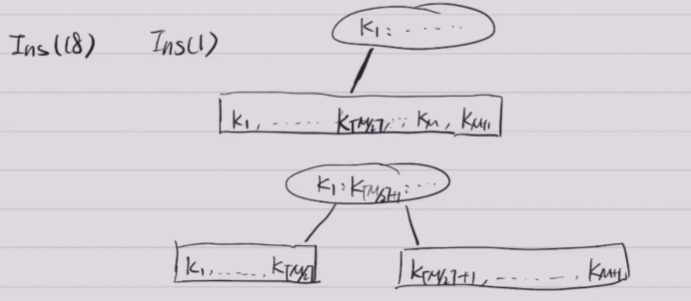 Ins(18) Ins(1)
K₁: ......
K₁, ...... K⌈M/2⌉, .. K_M, K_M+1
K₁:K⌈M/2⌉+1: ...
K₁, ...... K⌈M/2⌉
K⌈M/2⌉+1, ....... K_M+1